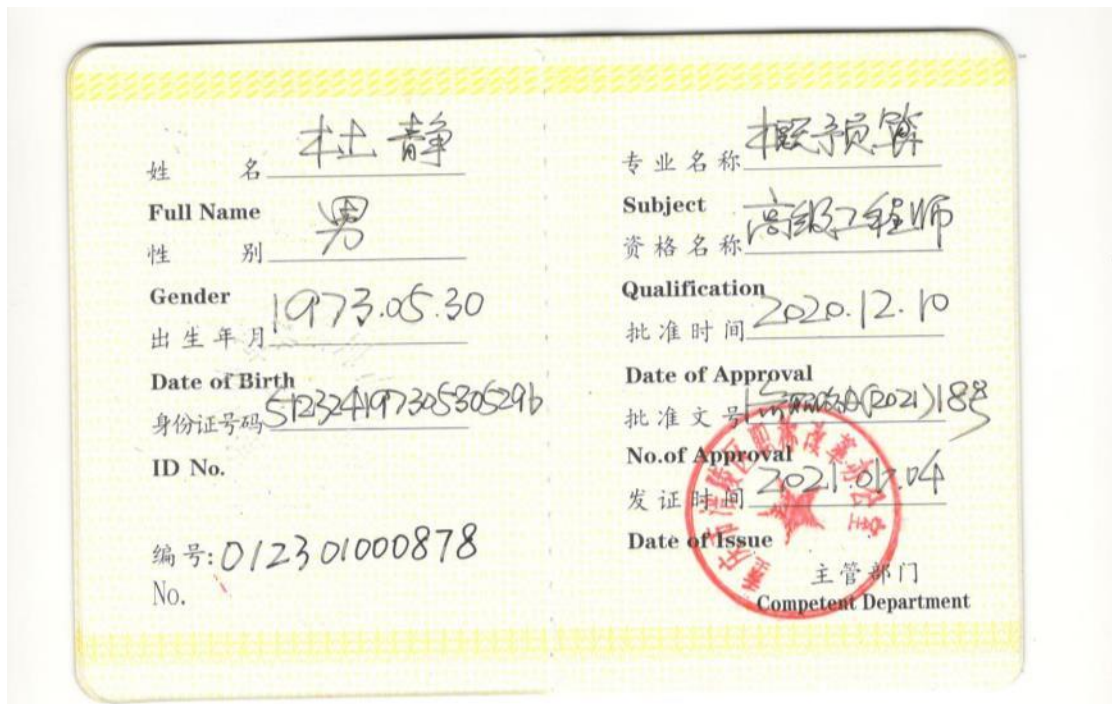 姓名 杜静
Full Name
性别 男
Gender
出生年月 1973.05.30
Date of Birth
身份证号码 512324197305305296
ID No.
编号: 012301000878
No.
专业名称 概预算
Subject
资格名称 高级工程师
Qualification
批准时间 2020.12.10
Date of Approval
批准文号 (2021)18号
No.of Approval
发证时间 2021.01.04
Date of Issue
主管部门
Competent Department
涪陵区职称改革办公室